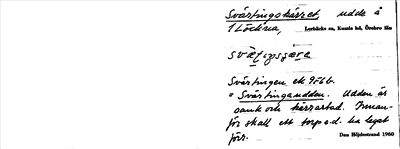 Svärtingskärret, udde å
1 Löckna, Lerbäcks sn, Kumla hd, Örebro län
Svärtingen ek 9566.
= Svärtingaudden. Udden är
sank och kärrartad. Innan-
för skall ett torp e.d. ha legat
förr.
Dan Höjdestrand 1960